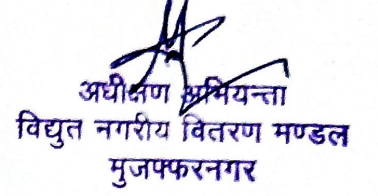 अधीक्षण अभियन्ता
विद्युत नगरीय वितरण मण्डल
मुजफ्फरनगर